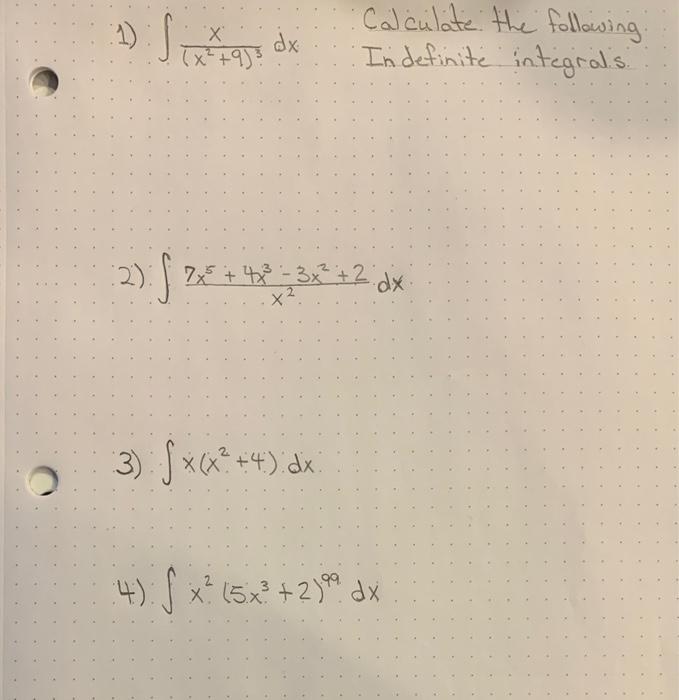 1) ∫ x/(x²+9)³ dx
Calculate the following
Indefinite integrals
2) ∫ 7x⁵ + 4x³ - 3x² + 2 / x² dx
3) ∫ x(x²+4) dx
4) ∫ x² (5x³+2)⁹⁹ dx